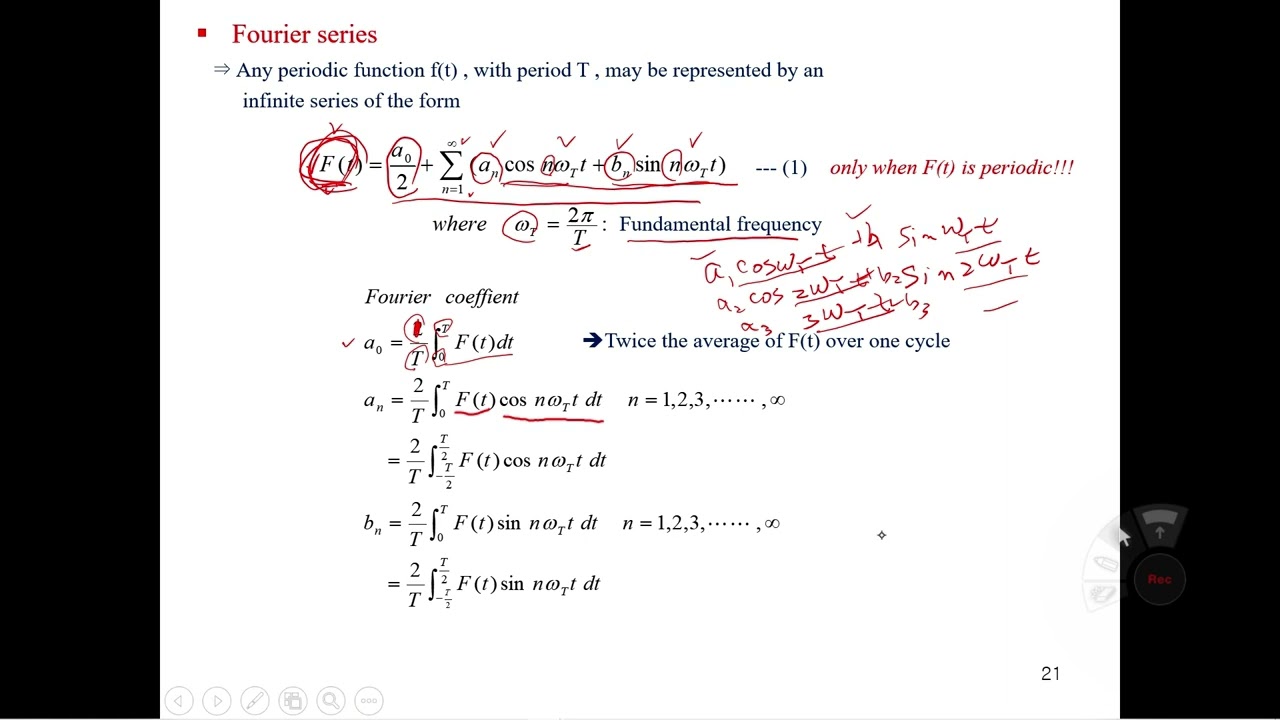 Fourier series
⇒ Any periodic function f(t) , with period T , may be represented by an
infinite series of the form
F(t) = a₀/2 + ∑_{n=1}^{∞} (aₙ cos nω_T t + bₙ sin nω_T t) --- (1) only when F(t) is periodic!!!
where ω_T = 2π/T : Fundamental frequency
a₁ cosω_T t + b₁ sin ω_T t
a₂ cos 2ω_T t + b₂ sin 2ω_T t
a₃ 3ω_T t + b₃
Fourier coeffient
a₀ = /T ∫₀^T F(t)dt ➔Twice the average of F(t) over one cycle
aₙ = 2/T ∫₀^T F(t) cos nω_T t dt n = 1,2,3,⋯⋯ ,∞
= 2/T ∫_{-T/2}^{T/2} F(t) cos nω_T t dt
bₙ = 2/T ∫₀^T F(t) sin nω_T t dt n = 1,2,3,⋯⋯ ,∞
= 2/T ∫_{-T/2}^{T/2} F(t) sin nω_T t dt
Rec
21